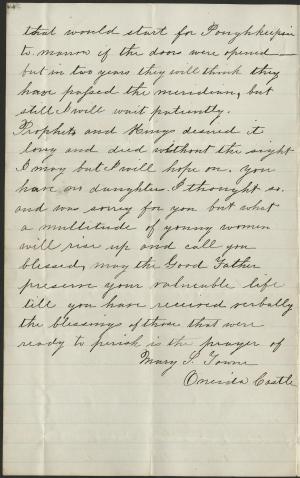 that would start for Poughkeepsie
to morrow if the doors were opened—
but in two years they will think they
have passed the meridian, but
still I will wait patiently.
Prophets and Kings desired it
long and died without the sight
I may but I will hope on. You
have no daughter I thought so.
and was sorry for you but what
a multitude of young women
will rise up and call you
blessed, may the Good Father
preserve your valueable life
till you have received verbally
the blessings of those that were
ready to perish is the prayer of
Mary S. Towne
Oneida Castle